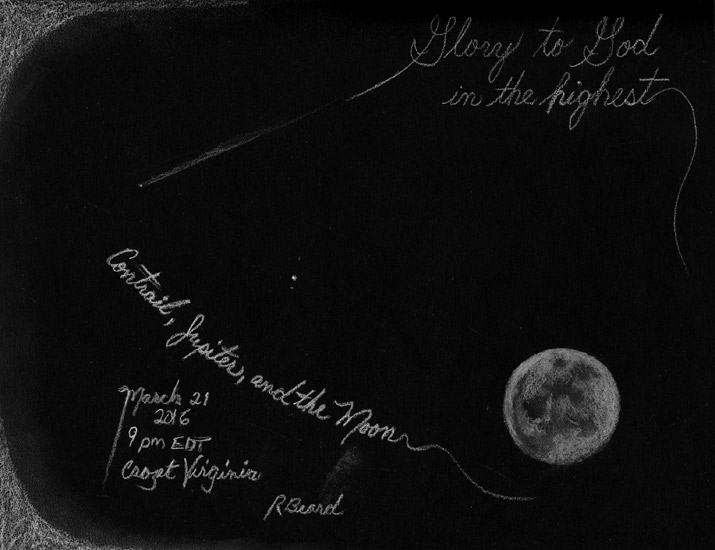 Glory to God
in the highest
Contrail, Jupiter, and the Moon
March 21
2016
9 pm EDT
Crozet Virginia
R Beard